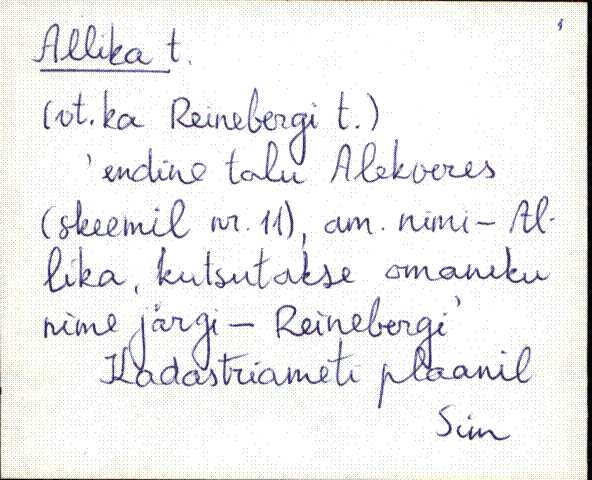 Allika t.
(vt. ka Reinebergi t.)
'endine talu Alekveres
(skeemil nr. 11), am. nimi – Al-
lika, kutsutakse omaniku
nime järgi – Reinebergi'
Kadastriameti plaanil
Sim